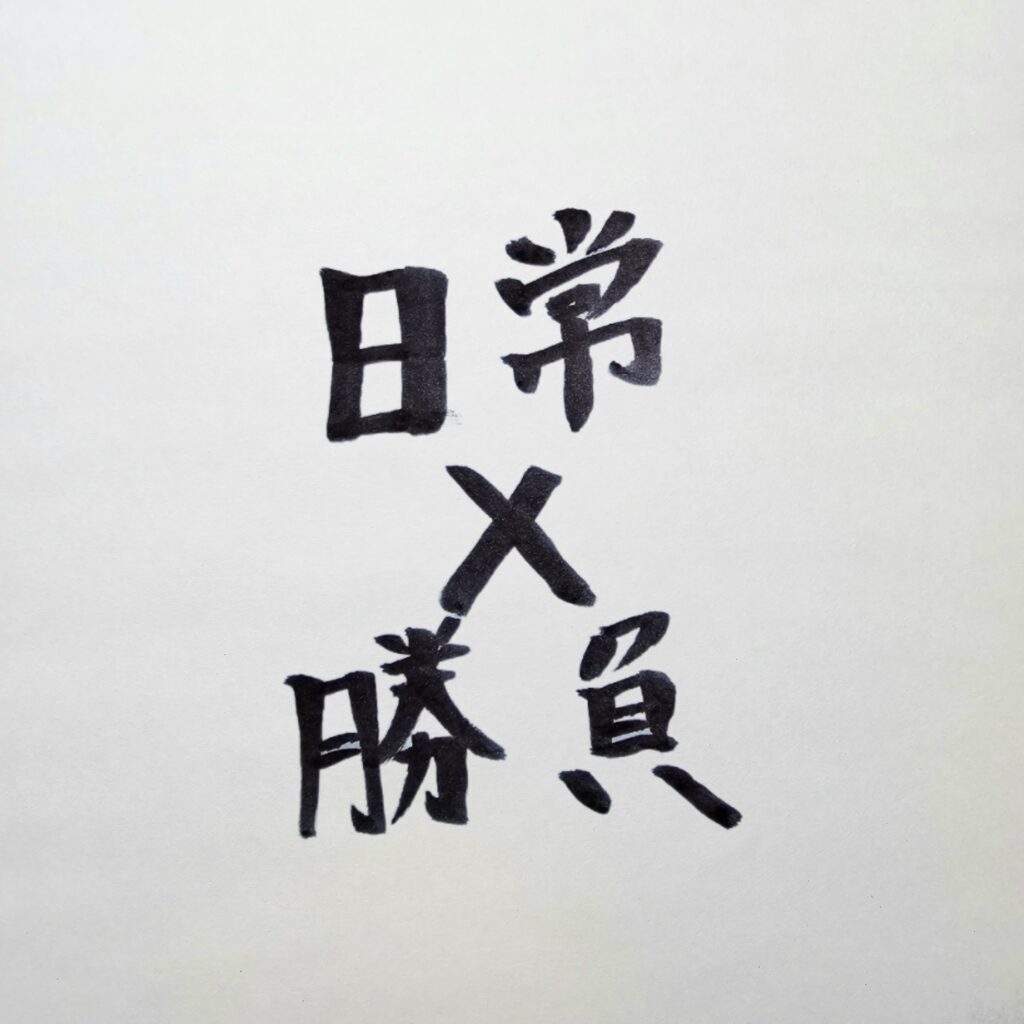 日常
×
勝負